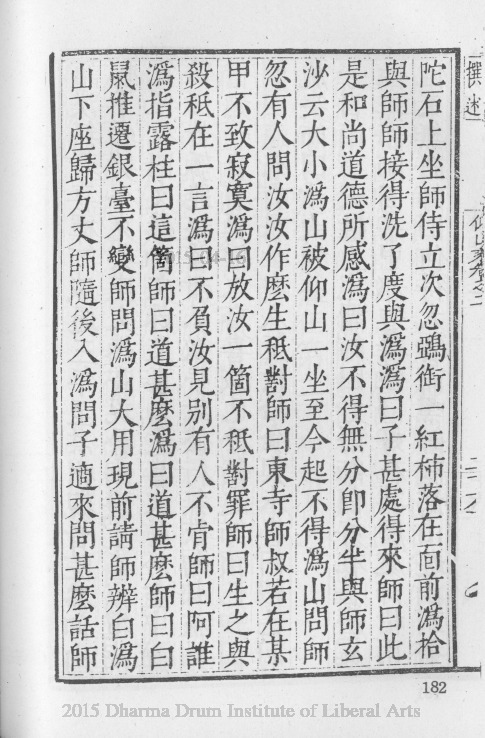 陀石上坐師侍立次忽鵶銜一紅柿落在面前潙拾
與師師接得洗了度與潙潙曰子甚處得來師曰此
是和尚道德所感潙曰汝不得無分即分半與師玄
沙云大小潙山被仰山一坐至今起不得潙山問師
忽有人問汝汝作麼生秪對師曰東寺師叔若在某
甲不致寂寞潙曰放汝一箇不秪對罪師曰生之與
殺秪在一言潙曰不負汝見別有人不肯師曰阿誰
潙指露柱曰這箇師曰道甚麼潙曰道甚麼師曰白
鼠推遷銀臺不變師問潙山大用現前請師辨白潙
山下座歸方丈師隨後入潙問子適來問甚麼話師
撰述
182
2015 Dharma Drum Institute of Liberal Arts